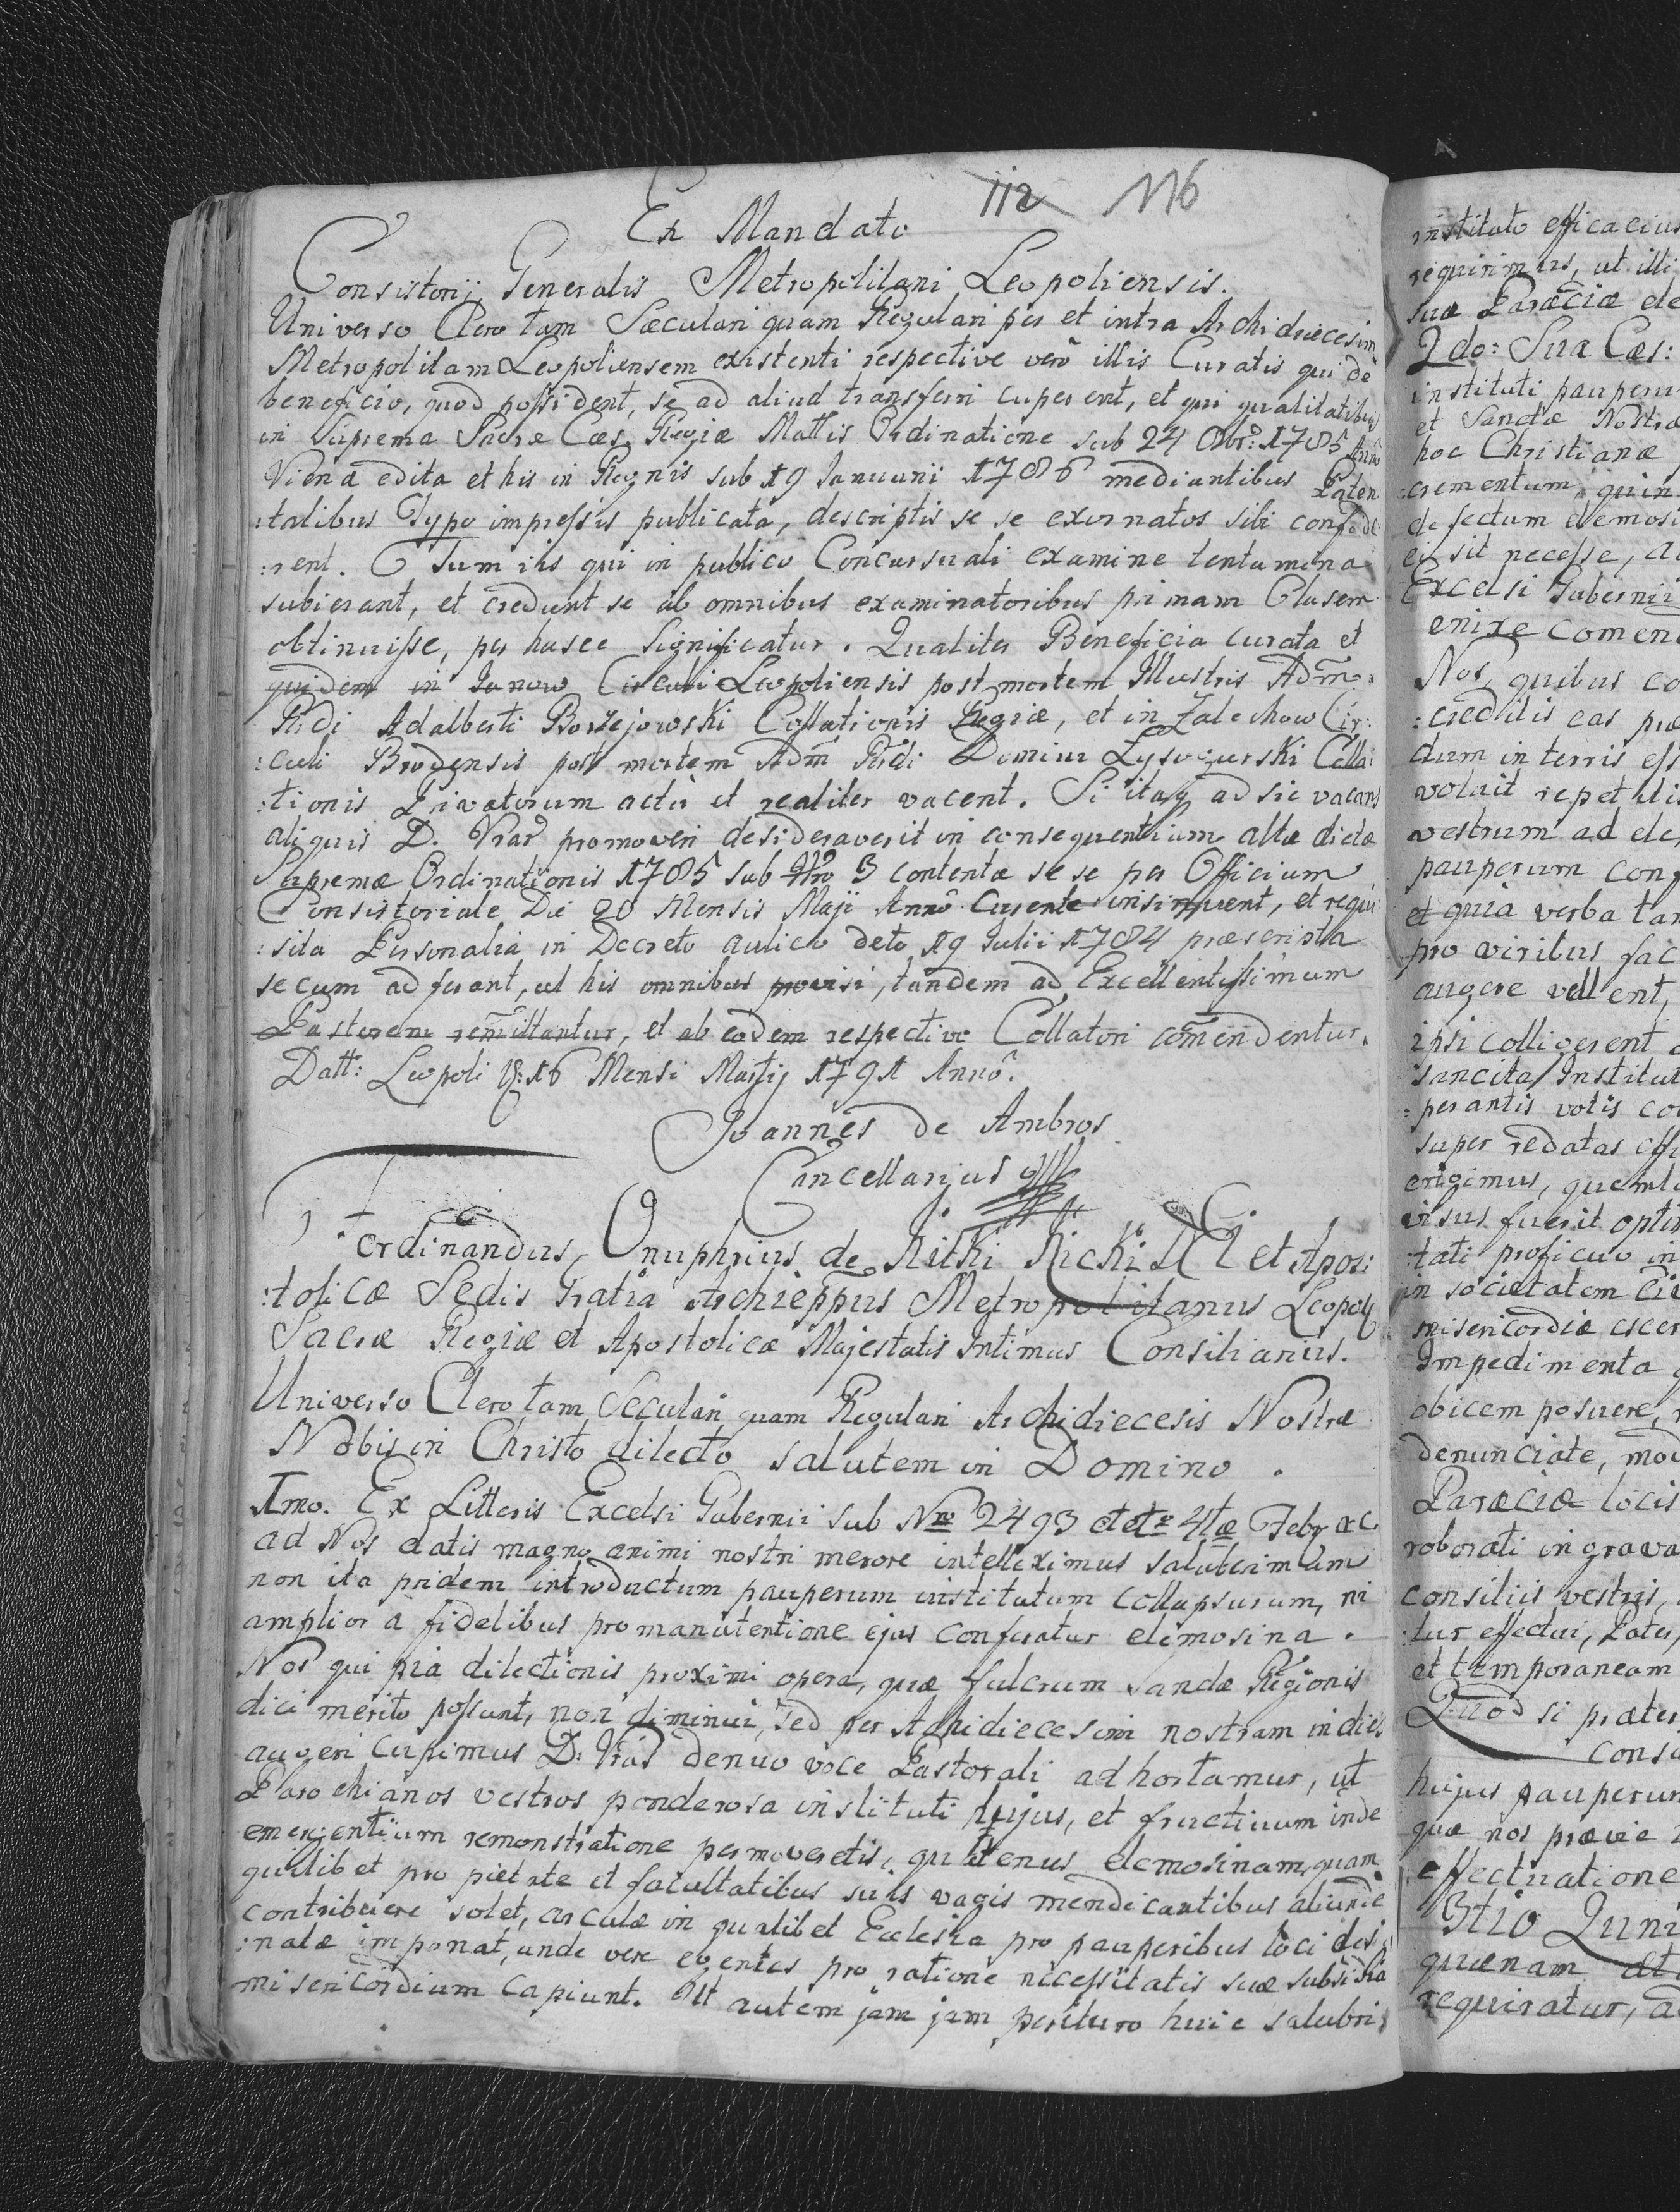 112 116
Ex Mandato
Consistorij Generalis Metropolitani Leopoliensis.
Universo Clero tam Sæculari quam Regulari per et intra Archidiæcesim
Metropolitam Leopoliensem existenti respective verò illis Curatis qui dè
beneficio, quod possident, se ad aliud transferri cuperent, et qui qualitatibus
in Suprema Sacræ Cæs. Regiæ Mattis Ordinatione sub 24 Obr: 1785 Anno
Viena edita et his in Regnis sub 19 Januarii 1786 mediantibus Paten
:talibus Typo impressis publicata, descriptis se se exornatos sibi confide
:rent. Tum iis qui in publico Concursuali examine tentamina
subierant, et credunt se ab omnibus examinatoribus primam Clasem
obtinuisse, per hasce significatur. Qualiter Beneficia curata et
quidem in Janow Circuli Leopoliensis post mortem Illustris Adm̃
Rdi Adalberti Borzejowski Collationis Regiæ, et in Zalechow Cir:
:culi Brodensis post mortem Adm̃ Rdi Domini Lysogurski Colla:
:tionis Privatorum actu et realiter vacent. Si itaq ad sic vacans
aliquis D. Vrar promoveri desideraverit in consequentiam altæ dictæ
Supremæ Ordinationis 1785 sub Nro 3 contentæ se se per Officium
Consistoriale Die 20 Mensis Maji Anno Curente insinuent, et requi:
:sita Personalia in Decreto aulico deto 19 Julii 1784 præscripta
secum adferant, ut his omnibus provisi, tandem ad Excellentissimum
Pastorem remittantur, et ab eodem respectivo Collatori com̃endentur.
Datt: Leopoli 16 Mensi Martij 1791 Anno.
Joannes de Ambros
Cancellarius
Ferdinandus, Onuphrius de Kitki Kicki DEI et Apos:
:tolicæ Sedis Gratia Archieppus Metropolitanus Leopol
Sacræ Regiæ et Apostolicæ Majestatis Intimus Consiliarius.
Universo Clero tam Seculari quam Regulari Archidiecesis Nostræ
Nobis in Christo dilecto salutem in Domino.
Imo. Ex Litteris Excelsi Gubernii sub Nro 2493 et 4tæ Febr
ad Nos datis magno animi nostri merore intelleximus saluberimum
non ita pridem introductum pauperum institutum collapsurum, ni
amplior a fidelibus pro manutentione ejus conferatur elemosina.
Nos qui pia dilectionis proximi opera, quæ fulcrum Sanctæ Regionis
dici merito possunt, non diminui, sed per Archidiecesim nostram in dies
augeri cupimus D: Vras denuo voce Pastorali adhortamur, ut
Parochianos vestros ponderosa instituti hujus, et fructuum inde
emergentium remonstratione permoveretis, quatenus elemosinam, quam
quilibet pro pietate et facultatibus suis vagis mendicantibus aliunde
contribuere solet, arculæ in qualibet Ecclesia pro pauperibus loci desi
:natæ imponat, unde vere egentes pro ratione necessitatis suæ subsidia
misericordium capiunt. Ut autem jam jam perituro huic salubri
instituto efficacius
requirimus, ut illi
suæ Paræciæ ele
2do: Sua Cæs:
instituti pauperu
et Sanctæ Nostræ
hoc Christianæ
:crementum, quin
defectum elemosi
ei sit necesse, a
Excelsi Gubernii
enixe comen
Nos, quibus co
:creditis eas præ
dum in terris ess
voluit repetitis
vestrum ad ele
pauperum conf
et quia verba tan
pro viribus fac
augere vellent,
ipsi colligerent
sancita Institut
:perantis votis co
super redatas effi
erigimus, quemt
visus fuerit opti
:tati proficuo in
in societatem
misericordiæ
Impedimenta q
obicem posuere,
denunciate, mod
Paræciæ locis
roborati in grava
consiliis vestris,
:tur effectui, Pater,
et temporaneam
Quod si præter
consu
hujus pauperum
quæ nos prævie
effectuatione
3tio Quni
quænam at
requiratur, a